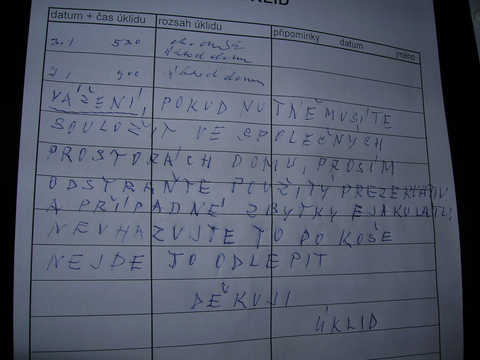 ÚKLID
datum + čas úklidu rozsah úklidu připomínky datum jméno
3.1 530 chodby vchod domu
7.1 900 vchod domu
VÁŽENÍ, POKUD NUTNĚ MUSÍTE
SOULOŽIT VE SPOLEČNÝCH
PROSTORÁCH DOMU, PROSÍM
ODSTRAŇTE POUŽITÝ PREZERVATIV
A PŘÍPADNÉ ZBYTKY EJAKULÁTU,
NEVHAZUJTE TO DO KOŠE
NEJDE TO ODLEPIT
DĚKUJI
ÚKLID